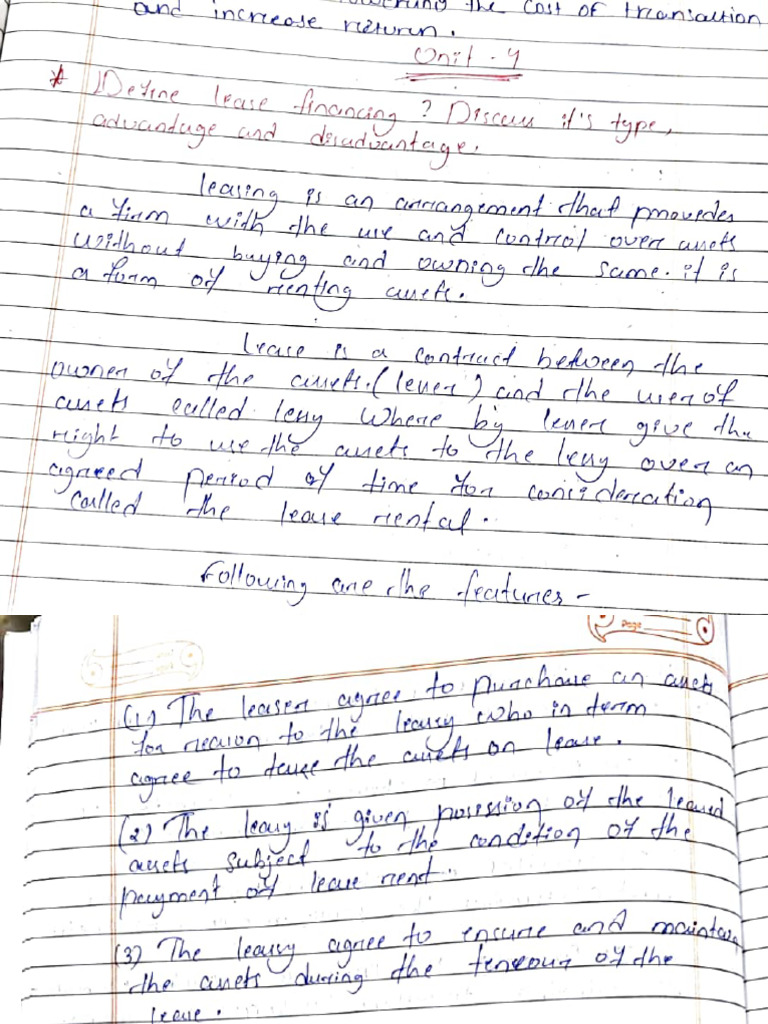 the cost of transaction
and increase return.
Unit - 4
* Define lease financing ? Discuss it's type,
advantage and disadvantage.
leasing is an arrangement that provedes
a firm with the use and control over assets
without buying and owning the same. it is
a form of renting assets.
Lease is a contract between the
owner of the assets. (lesser) and the user of
assets called lessy where by lesser give the
right to use the assets to the lessy over an
agreed period of time for consideration
called the lease rental.
Following are the features -
Page
(1) The leaser agree to purchase an assets
for reason to the leassy who in term
agree to the assets on lease.
(2) The leassy is given possession of the leased
assets subject to the condetion of the
payment of lease rent.
(3) The leassy agree to ensure and maintain
the assets during the of the
lease.